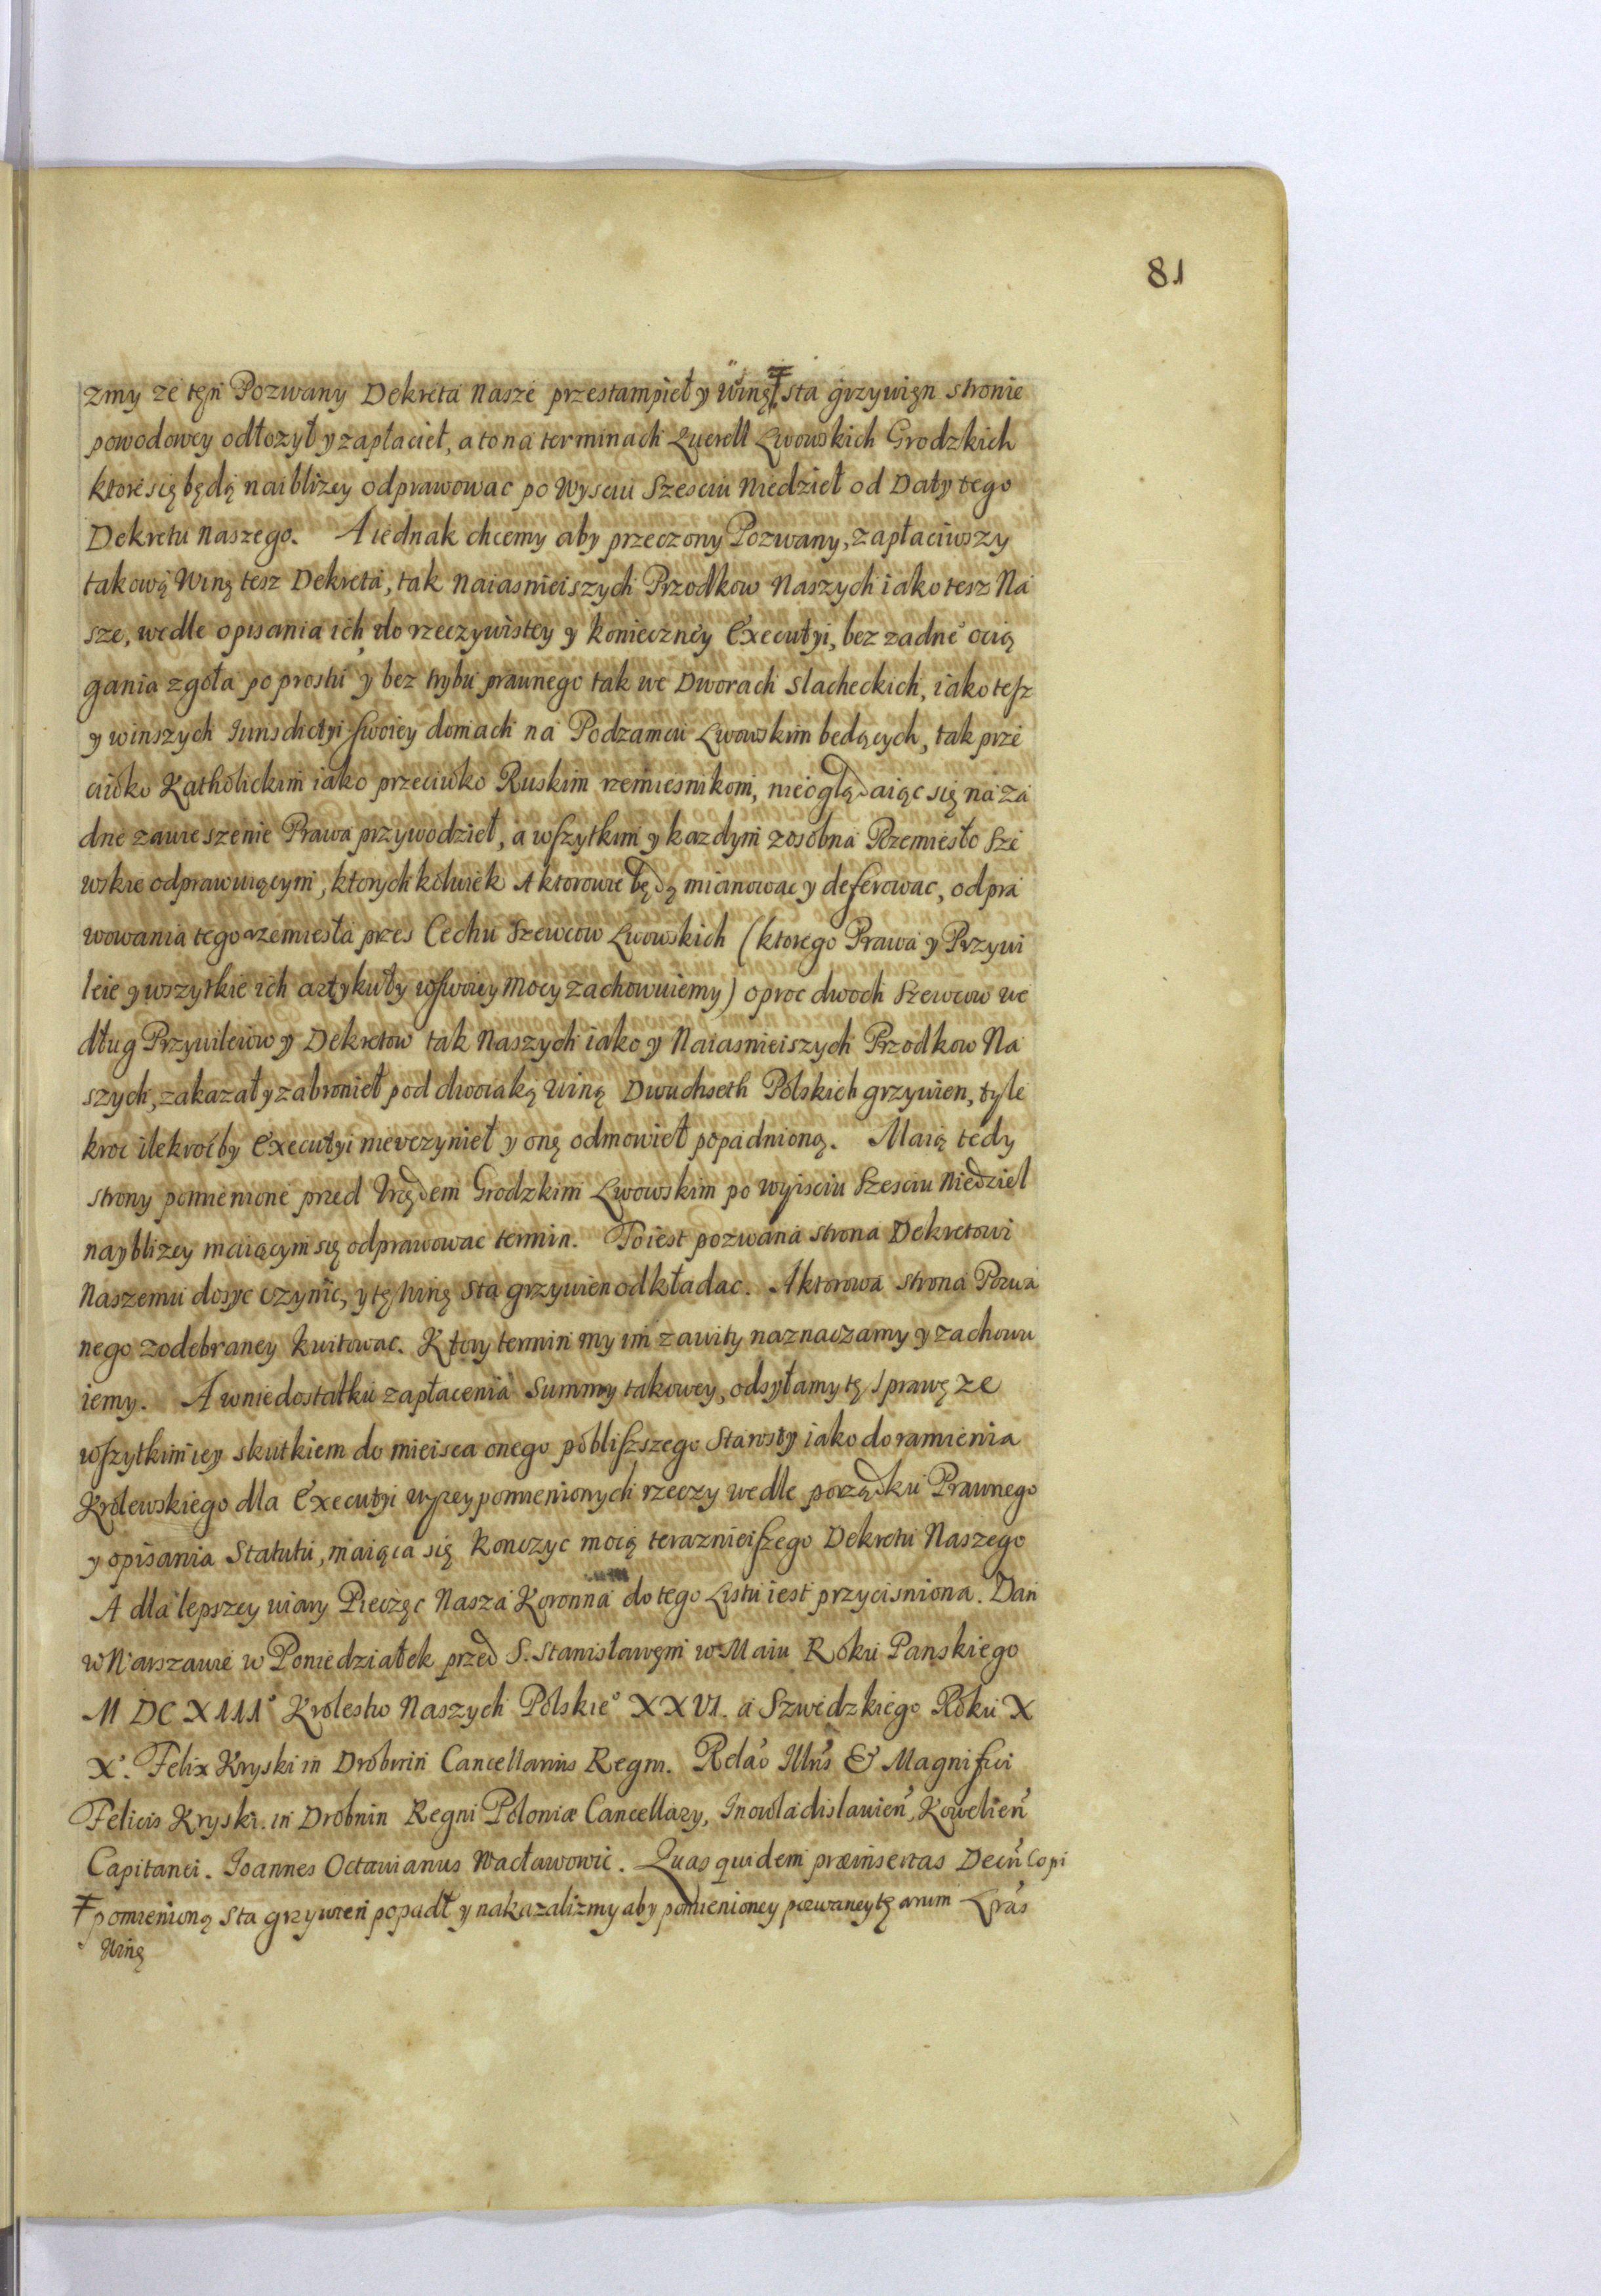 81
zmy ze tęn Pozwany Dekreta Nasze przestampieł y Winę ⹋ sta grzywięn stronie
powodowey odłozył y zapłacieł, a to na terminach Querell Lwowskich Grodzkich
ktore się będą naiblizey odprawowac po Wysciu Szesciu Niedzieł od Daty tego
Dekretu Naszego. A iednak chcemy aby przeczony Pozwany, zapłaciwszy
takową Winę tesz Dekreta, tak Naiasnieiszych Przodkow Naszych iako tesz Na
sze, wedle opisania ich, do rzeczywistey y konieczney Executyi, bez zadne° ocią
gania zgoła po prostu y bez trybu prawnego tak we Dworach Slacheckich, iako tesz
y w inszych Iurisdictyi swoiey domach na Podzamciu Lwowskim bedących, tak prze
ciwko Katholickim iako przeciwko Ruskim rzemiesnikom, nieoglądaiąc się na za
dne zawieszenie Prawa przywodzieł, a wszytkim y kazdym zosobna Rzemiesło Sze
wskie odprawuiącym, ktorychkolwiek Aktorowie będą mianowac y deferowac, odpra
wowania tego rzemiesła przes Cechu Szewcow Lwowskich (ktorego Prawa y Przywi
leie y wszytkie ich artykuły w swoiey mocy zachowuiemy) oproc dwoch Szewcow we
dług Przywileiow y Dekretow tak Naszych iako y Naiasnieiszych Przodkow Na
szych, zakazał y zabronieł pod dwoiaką winą Dwuchseth Polskich grzywien, tyle
kroc ilekrocby Executyi nieuczynieł y onę odmowieł popadnioną. Maią tedy
strony pomienione przed Urzędem Grodzkim Lwowskim po wyisciu Szesciu Niedziel
nayblizey maiącym się odprawowac termin. To iest pozwana strona Dekretowi
Naszemu dosyc czynic, y tę winę Sta grzywien odkładac. Aktorowa strona Pozwa
nego zodebraney kwitowac. Ktory termin my im zawity naznaczamy y zachowu
iemy. A w niedostatku zapłacenia Summy takowey, odsyłamy tę sprawę ze
wszytkim iey skutkiem do mieisca onego pobliszszego Starosty iako do ramienia
Krolewskiego dla Executyi wyzey pomienionych rzeczy wedle porządku Prawnego
y opisania Statutu, maiąca się konczyc mocą teraznieiszego Dekretu Naszego
A dla lepszey wiary Pieczęc Nasza Koronna do tego Listu iest przycisniona. Dan
w Warszawie w Poniedziałek przed S. Stanisławęm w Maiu Roku Panskiego
M DC XIII° Krolestw Naszych Polskie° XXVI. a Szwedzkiego Roku X
X°. Felix Kryski in Drobnin Cancellarius Regni. Relao Illris & Magnifici
Felicis Kryski. in Drobnin Regni Poloniæ Cancellary, Inowladislauien, Kowelien
Capitanei. Joannes Octauianus Wacławowic. Quas quidem præinsertas Decri Copi
⹋ pomienioną Sta grzywien popadł y nakazalizmy aby pomienioney pozwaney tę arum Lras
Winę